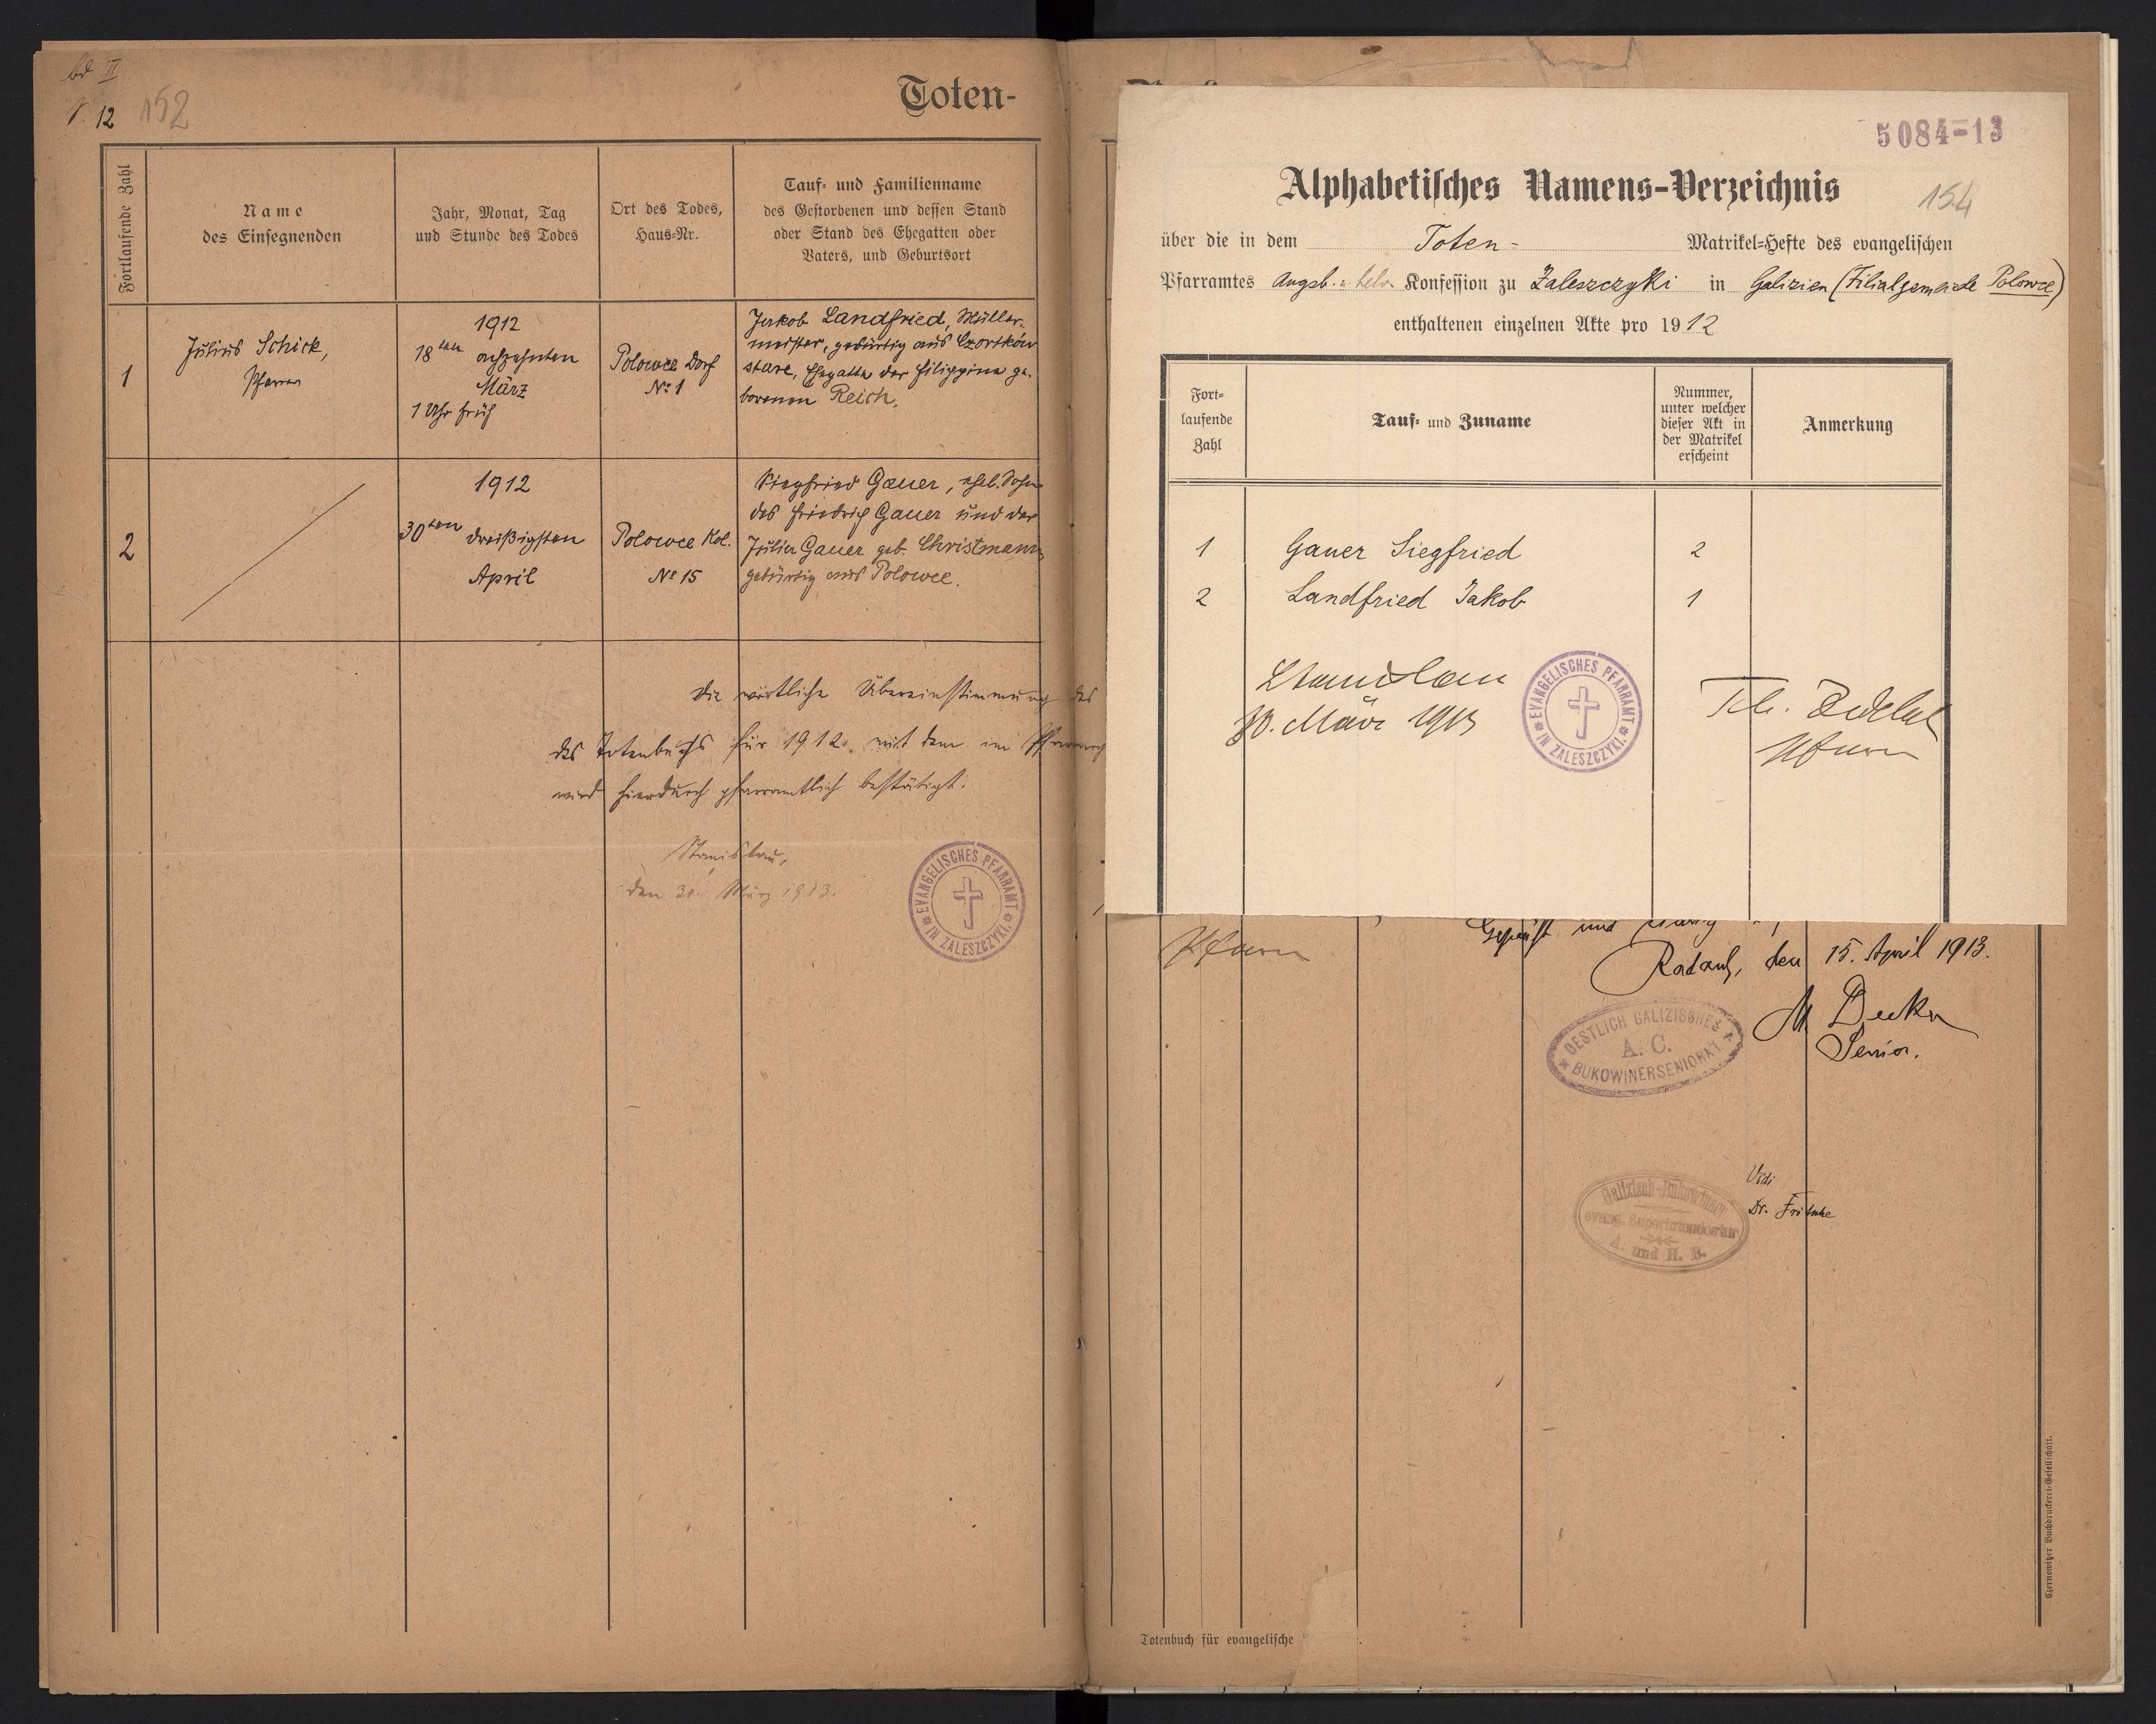 bd II
12 152
Toten-
Fortlaufende Zahl
Name
des Einsegnenden
Jahr, Monat, Tag
und Stunde des Todes
Ort des Todes,
Haus-Nr.
Tauf- und Familienname
des Gestorbenen und dessen Stand
oder Stand des Ehegatten oder
Vaters, und Geburtsort
1
Julius Schick,
Pfarrer
1912
18ten achzehnten
März
1 Uhr früh
Polowce Dorf
No 1
Jakob Landfried, Müller-
meister, gebürtig aus Czortków
stare, Ehegatte der Filippina ge-
borenen Reich.
2
1912
30ten dreißigsten
April
Polowce Kol.
No 15
Siegfried Gauer, ehel. Sohn
des Friedrich Gauer und der
Julia Gauer geb. Christmann,
gebürtig aus Polowce.
Die wörtliche Übereinstimmung des
des Totenbuchs für 1912 mit dem im
wird hierdurch pfarramtlich bestätigt.
Stanislau,
den 30. März 1913.
EVANGELISCHES PFARRAMT
IN ZALESZCZYKI.
5084-13
Alphabetisches Namens-Verzeichnis
154
über die in dem Toten- Matrikel-Hefte des evangelischen
Pfarramtes Augsb. u. helv. Konfession zu Zaleszczyki in Galizien (Filialgemeinde Polowce)
enthaltenen einzelnen Akte pro 1912
Fort-
laufende
Zahl
Tauf- und Zuname
Nummer,
unter welcher
dieser Akt in
der Matrikel
erscheint
Anmerkung
1 Gauer Siegfried 2
2 Landfried Jakob 1
Stanislau
30. März 1913
EVANGELISCHES PFARRAMT
IN ZALESZCZYKI.
Pfarrer
Pfarrer
Geprüft und
Radautz, den 15. April 1913.
M Decker
Senior.
OESTLICH GALIZISCHES
A. C.
BUKOWINERSENIORAT
Vidi
Dr. Fritsche
Galizisch-Bukowinaer
evang. Superintendentur
A. und H. B.
Totenbuch für evangelische
Czernowitzer Buchdruckerei-Gesellschaft.